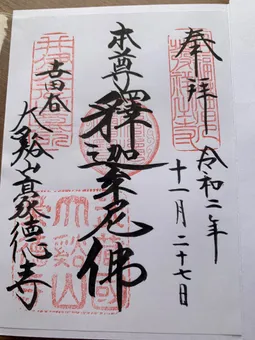 奉拝
令和二年
十一月二十七日
本尊釋迦牟尼佛
世田谷
大谿山豪德寺
大谿山